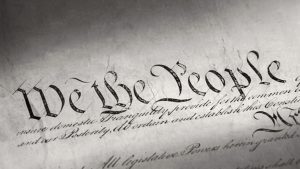 We the People
insure domestic Tranquility, provide for the common
and our Posterity, do ordain and establish this Const
All legislative Powers herein granted